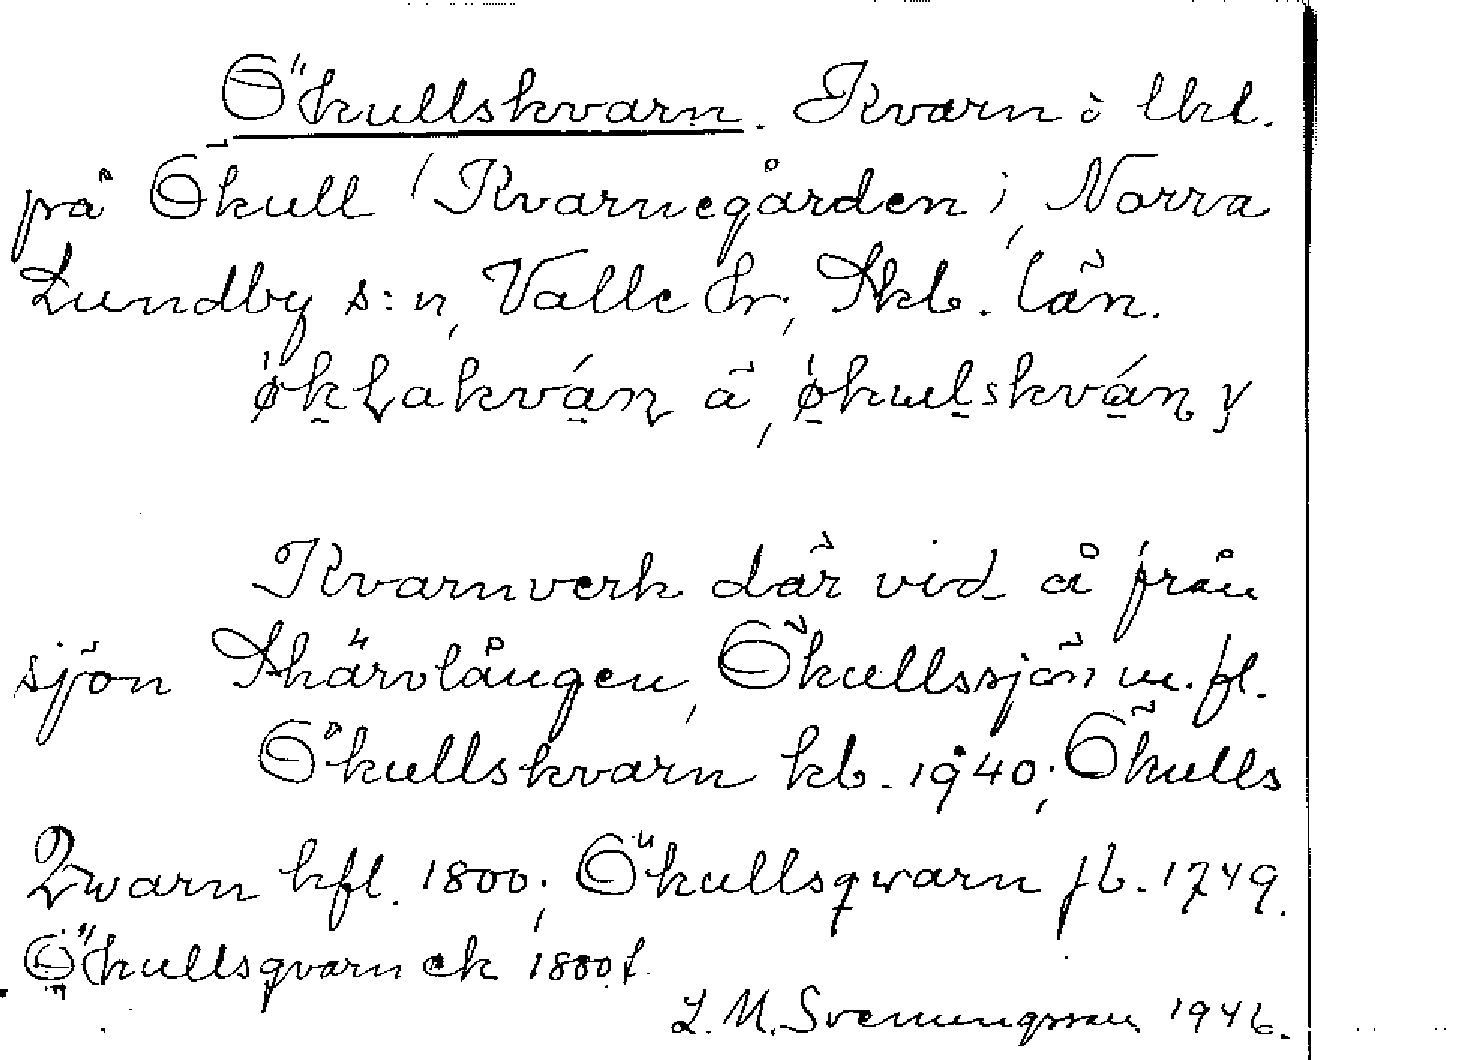 Ökullskvarn. Kvarn i lkl.
på Ökull (Kvarnegården), Norra
Lundby s:n, Valle hr, Skb. län.
Kvarnverk där vid å från
sjön Skärvlången, Ökullssjön m. fl.
Ökullskvarn kb. 1940; Ökulls
Qwarn hfl. 1800; Ökullsqwarn jb. 1749.
Ökullsqvarn ek 1880 t.
L. M. Svenungsson 1946.